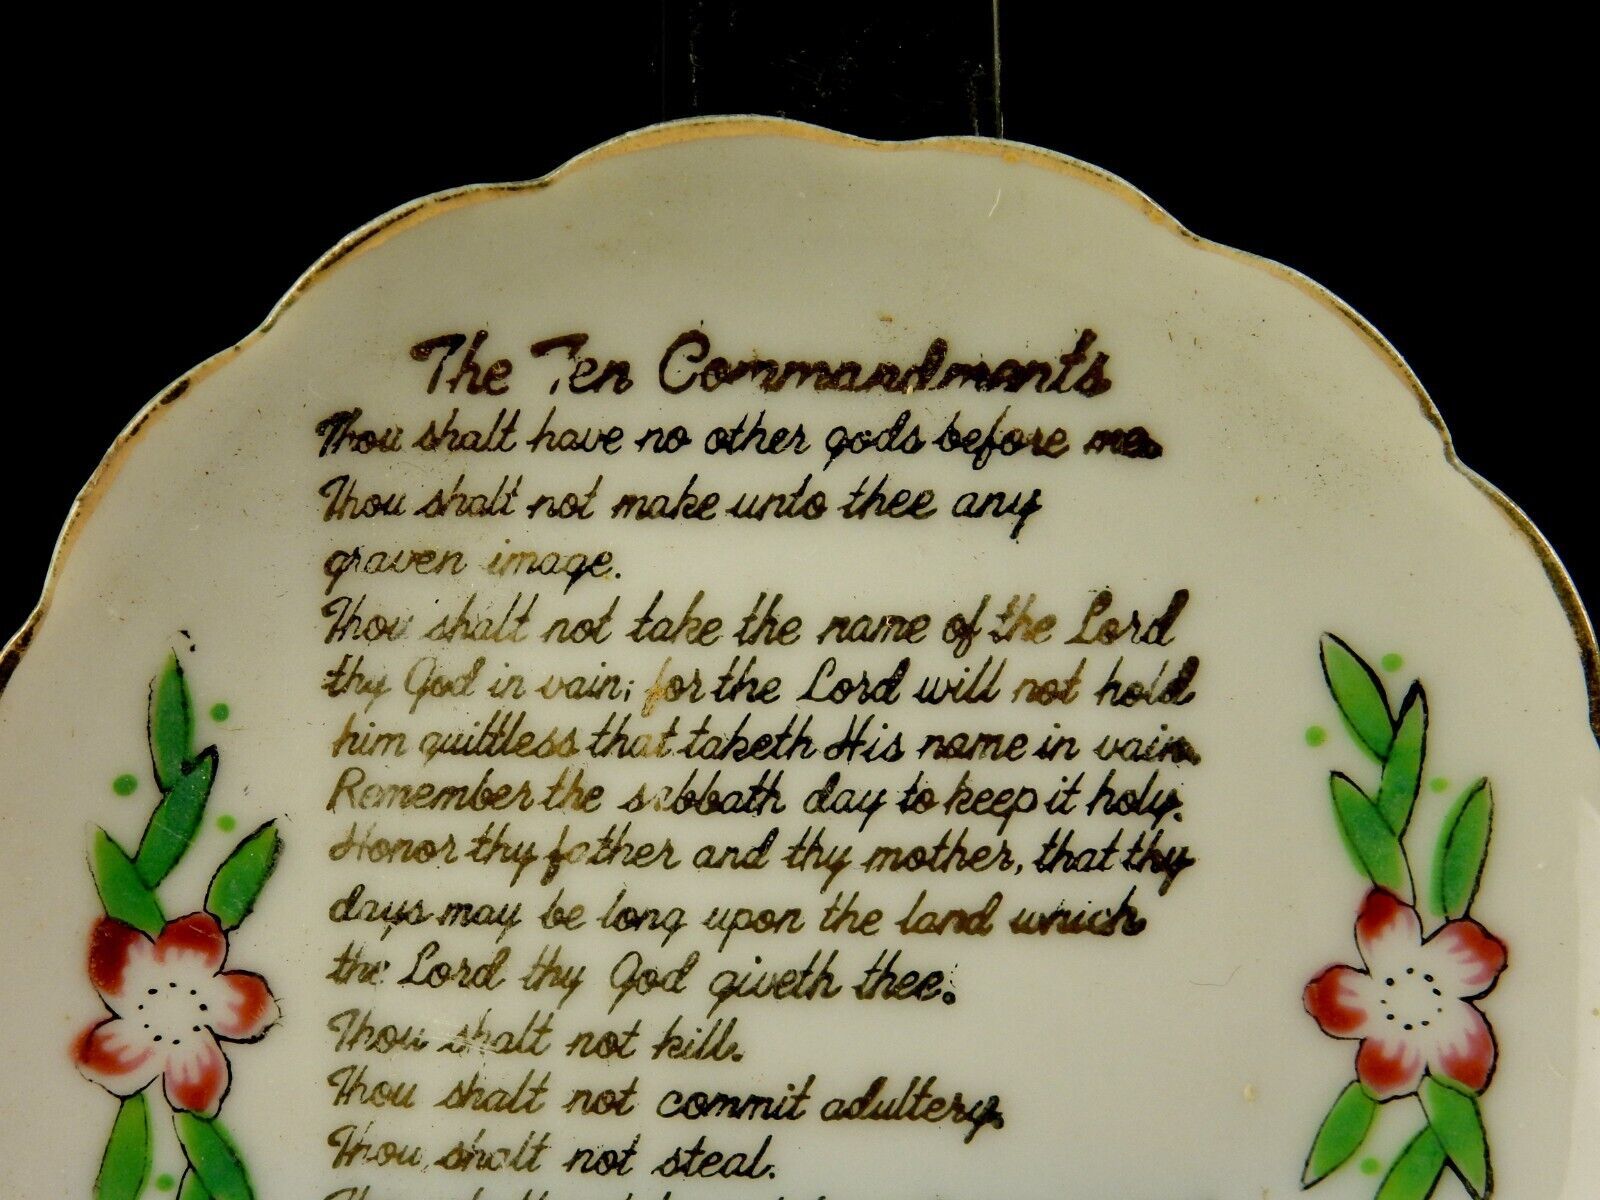 The Ten Commandments
Thou shalt have no other gods before me.
Thou shalt not make unto thee any
graven image.
Thou shalt not take the name of the Lord
thy God in vain; for the Lord will not hold
him guiltless that taketh His name in vain.
Remember the sabbath day to keep it holy.
Honor thy father and thy mother, that thy
days may be long upon the land which
the Lord thy God giveth thee.
Thou shalt not kill.
Thou shalt not commit adultery.
Thou shalt not steal.